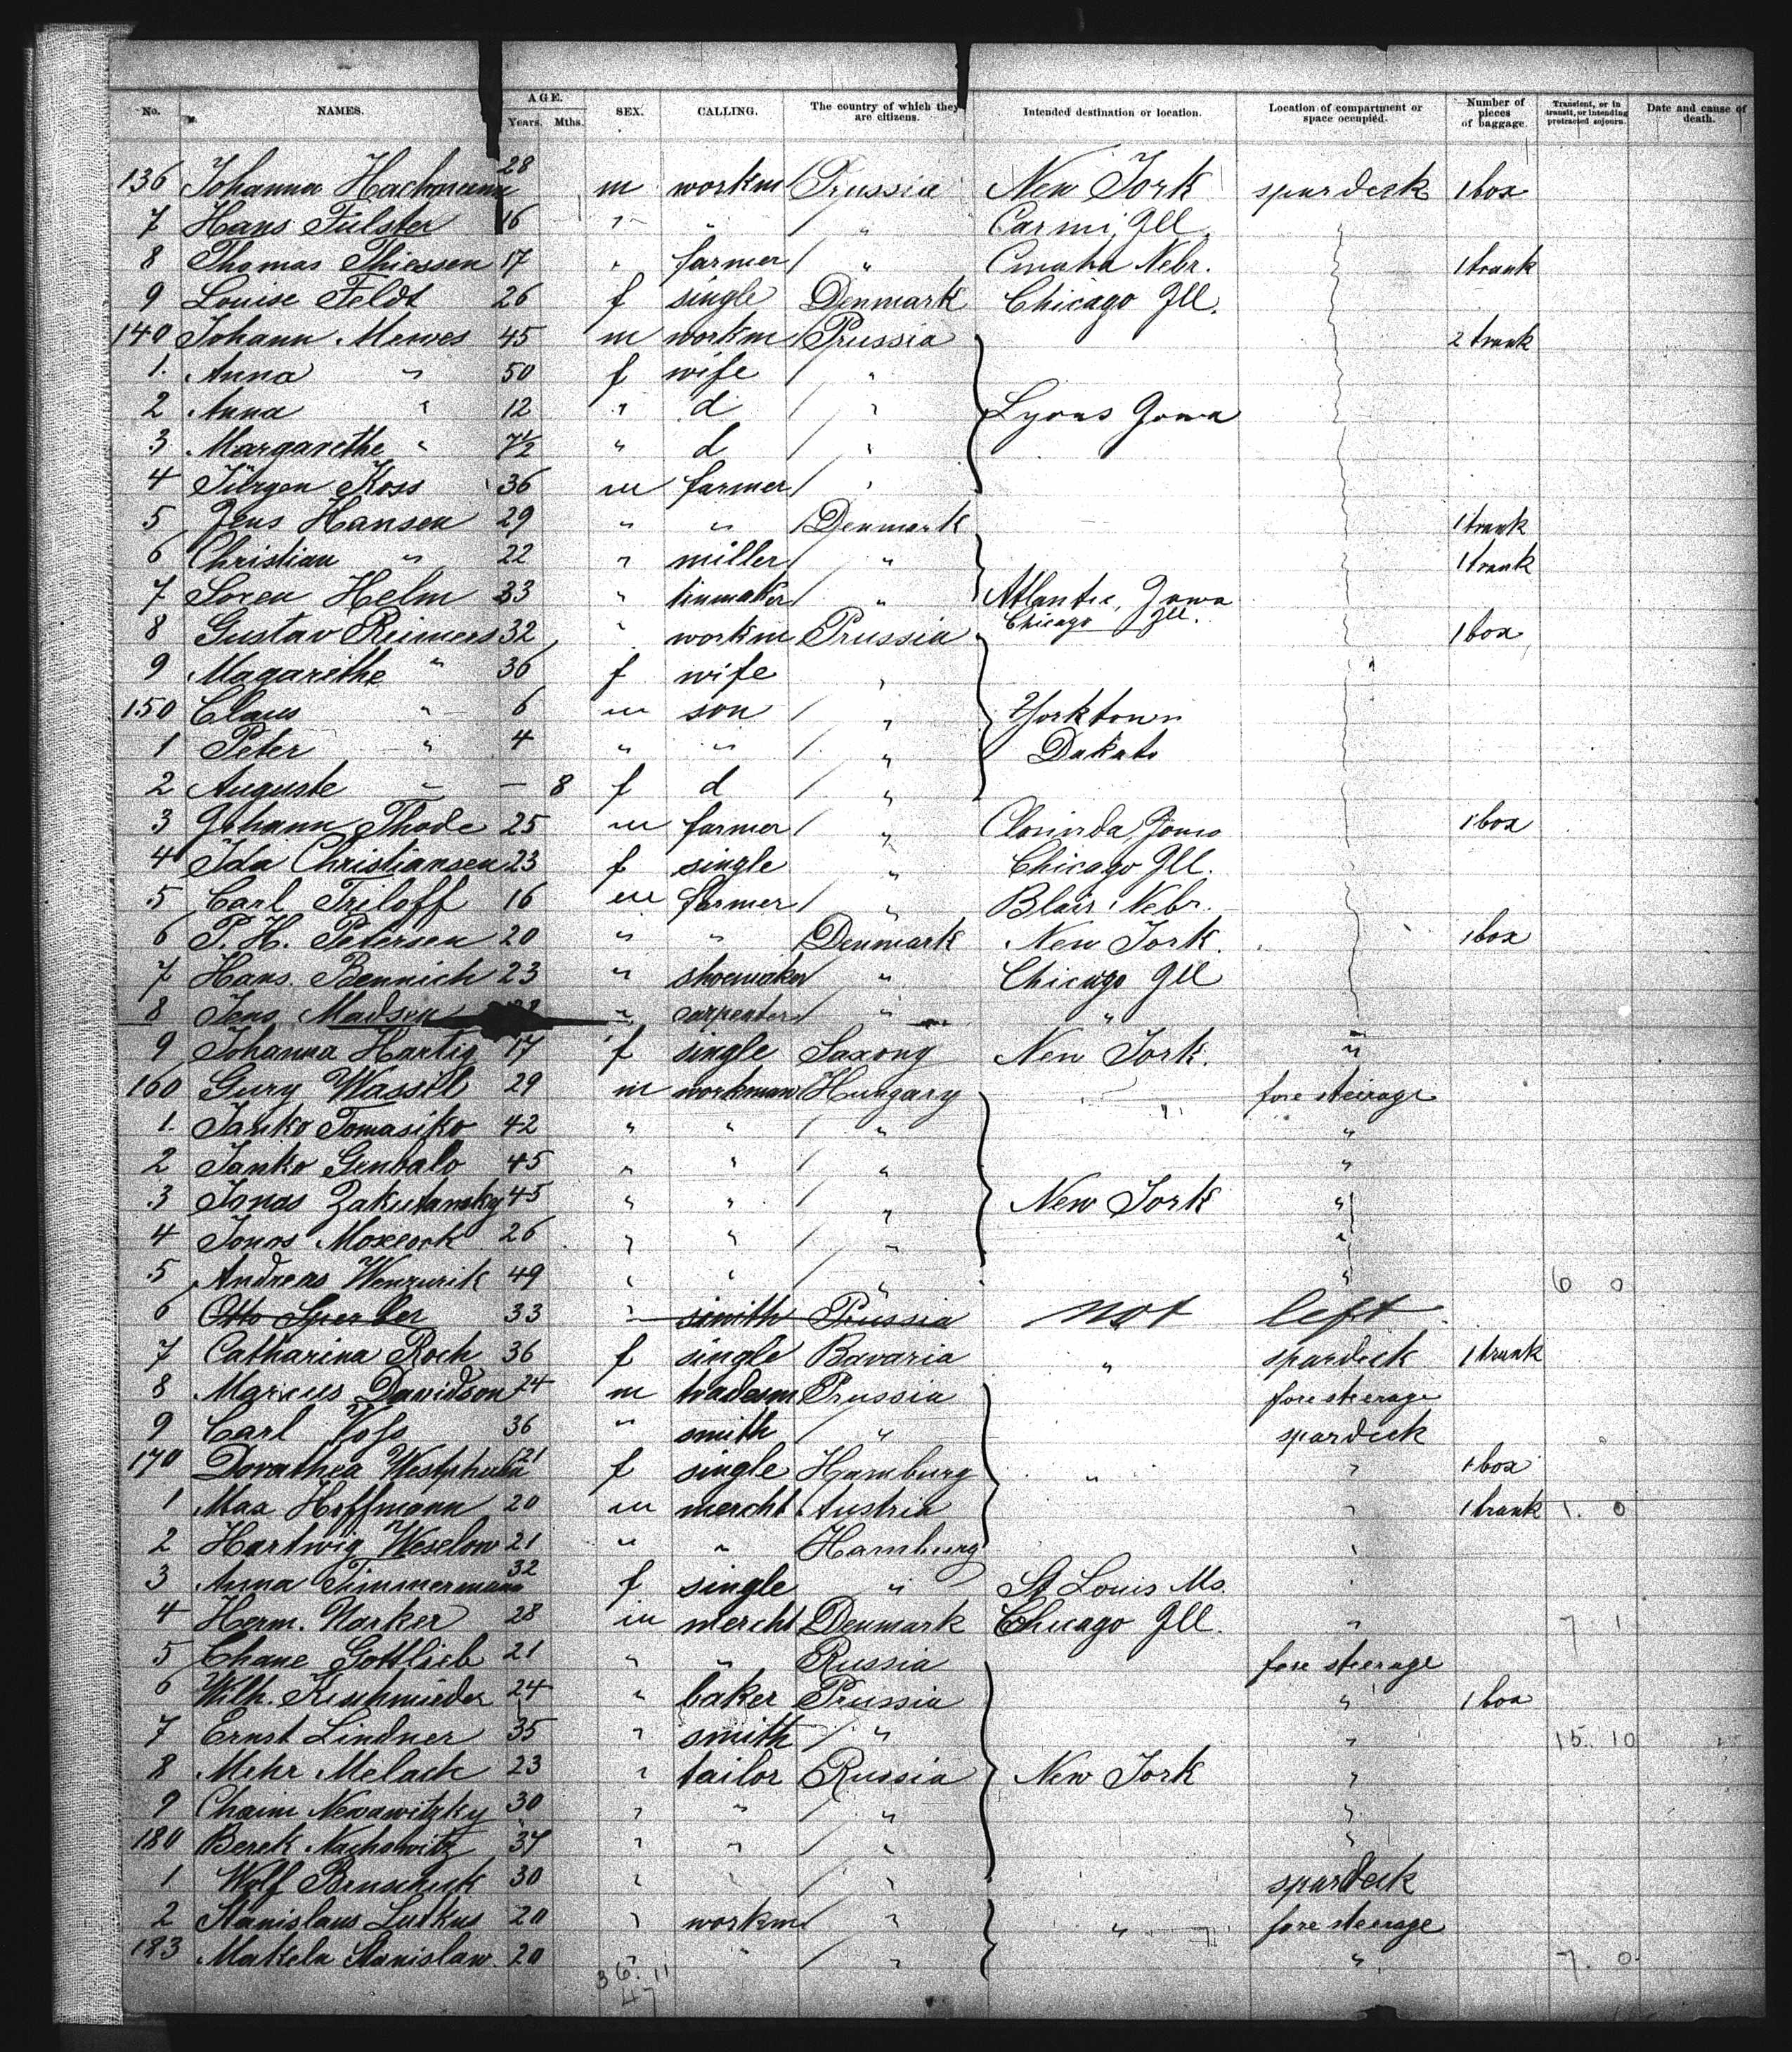 No. NAMES. AGE. Years. Mths. SEX. CALLING. The country of which they are citizens. Intended destination or location. Location of compartment or space occupied. Number of pieces of baggage. Transient, or in transit, or intending protracted sojourn. Date and cause of death.
136 Johanna Hachmann 28 m workm Prussia New York spardeck 1 box
7 Hans Fülster 16 " " " Carmi, Ill.
8 Thomas Thiessen 17 " farmer " Omaha Nebr. 1 trunk
9 Louise Feldt 26 f single Denmark Chicago Ill.
140 Johann Mewes 45 m workm Prussia 2 trunk
1. Anna " 50 f wife "
2 Anna " 12 " d " Lyons Iowa
3 Margarethe " 7½ " d "
4 Jürgen Koss 36 m farmer "
5 Jens Hansen 29 " " Denmark 1 trunk
6 Christian " 22 " miller " 1 trunk
7 Soren Helm 33 " tinmaker " Atlantic, Iowa
Chicago Ill.
8 Gustav Reimers 32 " workm Prussia 1 box
9 Magarethe " 36 f wife "
150 Claus " 6 m son " Yorktown
1 Peter " 4 " " " Dakato
2 Auguste " — 8 f d "
3 Johann Thode 25 m farmer " Clorinda, Iowa 1 box
4 Ida Christiansen 23 f single " Chicago Ill.
5 Carl Friloff 16 m farmer " Blair, Nebr.
6 P. H. Petersen 20 " " Denmark New York. 1 box
7 Hans Bennich 23 " shoemaker " Chicago Ill
8 Jens Madsen " carpenter " "
9 Johanna Hartig 17 f single Saxony New York. "
160 Gury Wassil 29 m workman Hungary " fore steerage
1. Janko Tomasiko 42 " " " "
2 Janko 45 " " " "
3 Jonas Zakutansky 45 " " " New York "
4 Jonas 26 " " " "
5 Andreas 49 " " " " 6 0
6 Otto Sperber 33 " smith Prussia not left
7 Catharina Roch 36 f single Bavaria " spardeck 1 trunk
8 Marcus Davidson 24 m tradesm Prussia fore steerage
9 Carl Voss 36 " smith " spardeck
170 Dorathea Westphal 21 f single Hamburg " " 1 box
1 Max Hoffmann 20 m mercht Austria " 1 trunk 1. 0
2 Hartwig Weselow 21 " " Hamburg "
3 Anna Timmermann 32 f single " St Louis Mo. "
4 Herm. Narker 28 m mercht Denmark Chicago Ill. " 7 1
5 Chane Gottlieb 21 " " Russia fore steerage
6 Wilh. 24 " baker Prussia " 1 box
7 Ernst Lindner 35 " smith " " 15. 10
8 Mehr Melach 23 " tailor Russia New York "
9 Chaim Newawitzky 30 " " " "
180 Berek Nachowitz 37 " " " "
1 Wolf 30 " " " spardeck
2 Stanislaus Luckus 20 " workm " " fore steerage
183 Makela Stanislaw. 20 " " " " 7. 0
36. 11
47